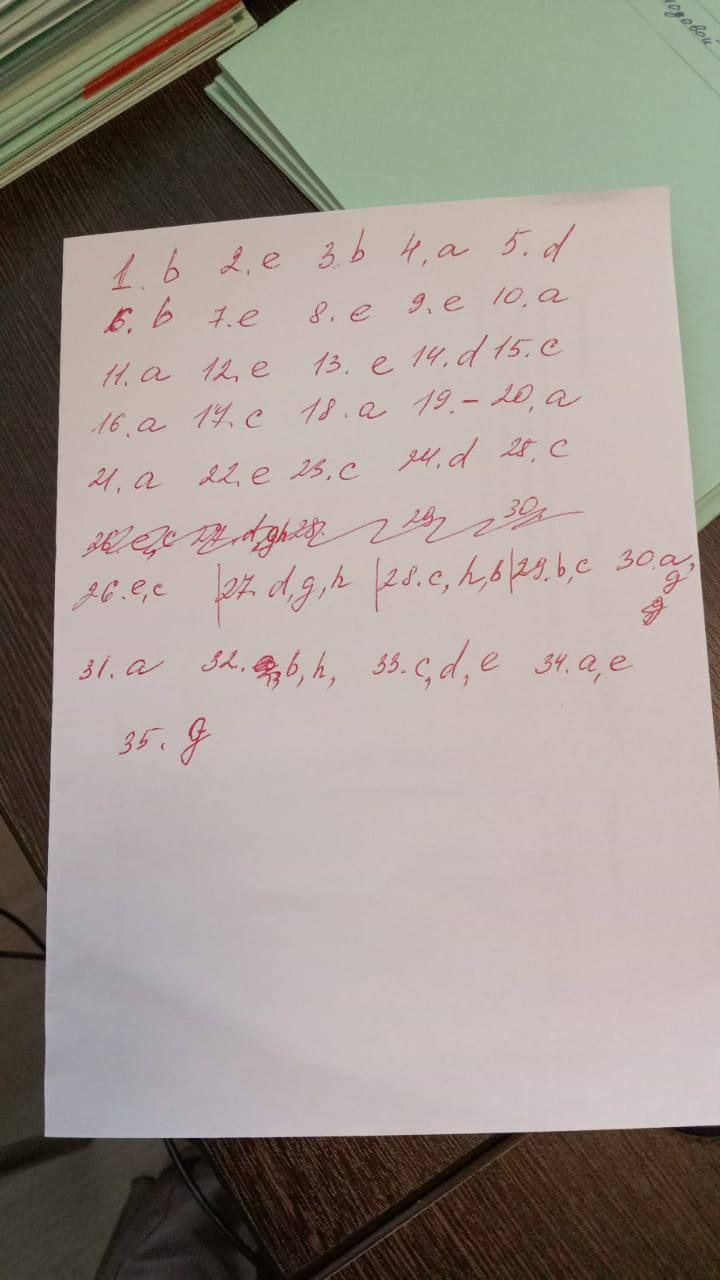 годовой
1. b 2. e 3. b 4. a 5. d
6. b 7. e 8. e 9. e 10. a
11. a 12. e 13. e 14. d 15. c
16. a 17. c 18. a 19. - 20. a
21. a 22. e 23. c 24. d 25. c
26. e, c 27. d, g, h 28. 29 30.
26. e, c | 27. d, g, h | 28. c, h, b | 29. b, c 30. a, g
31. a 32. b, h, 33. c, d, e 34. a, e
35. g